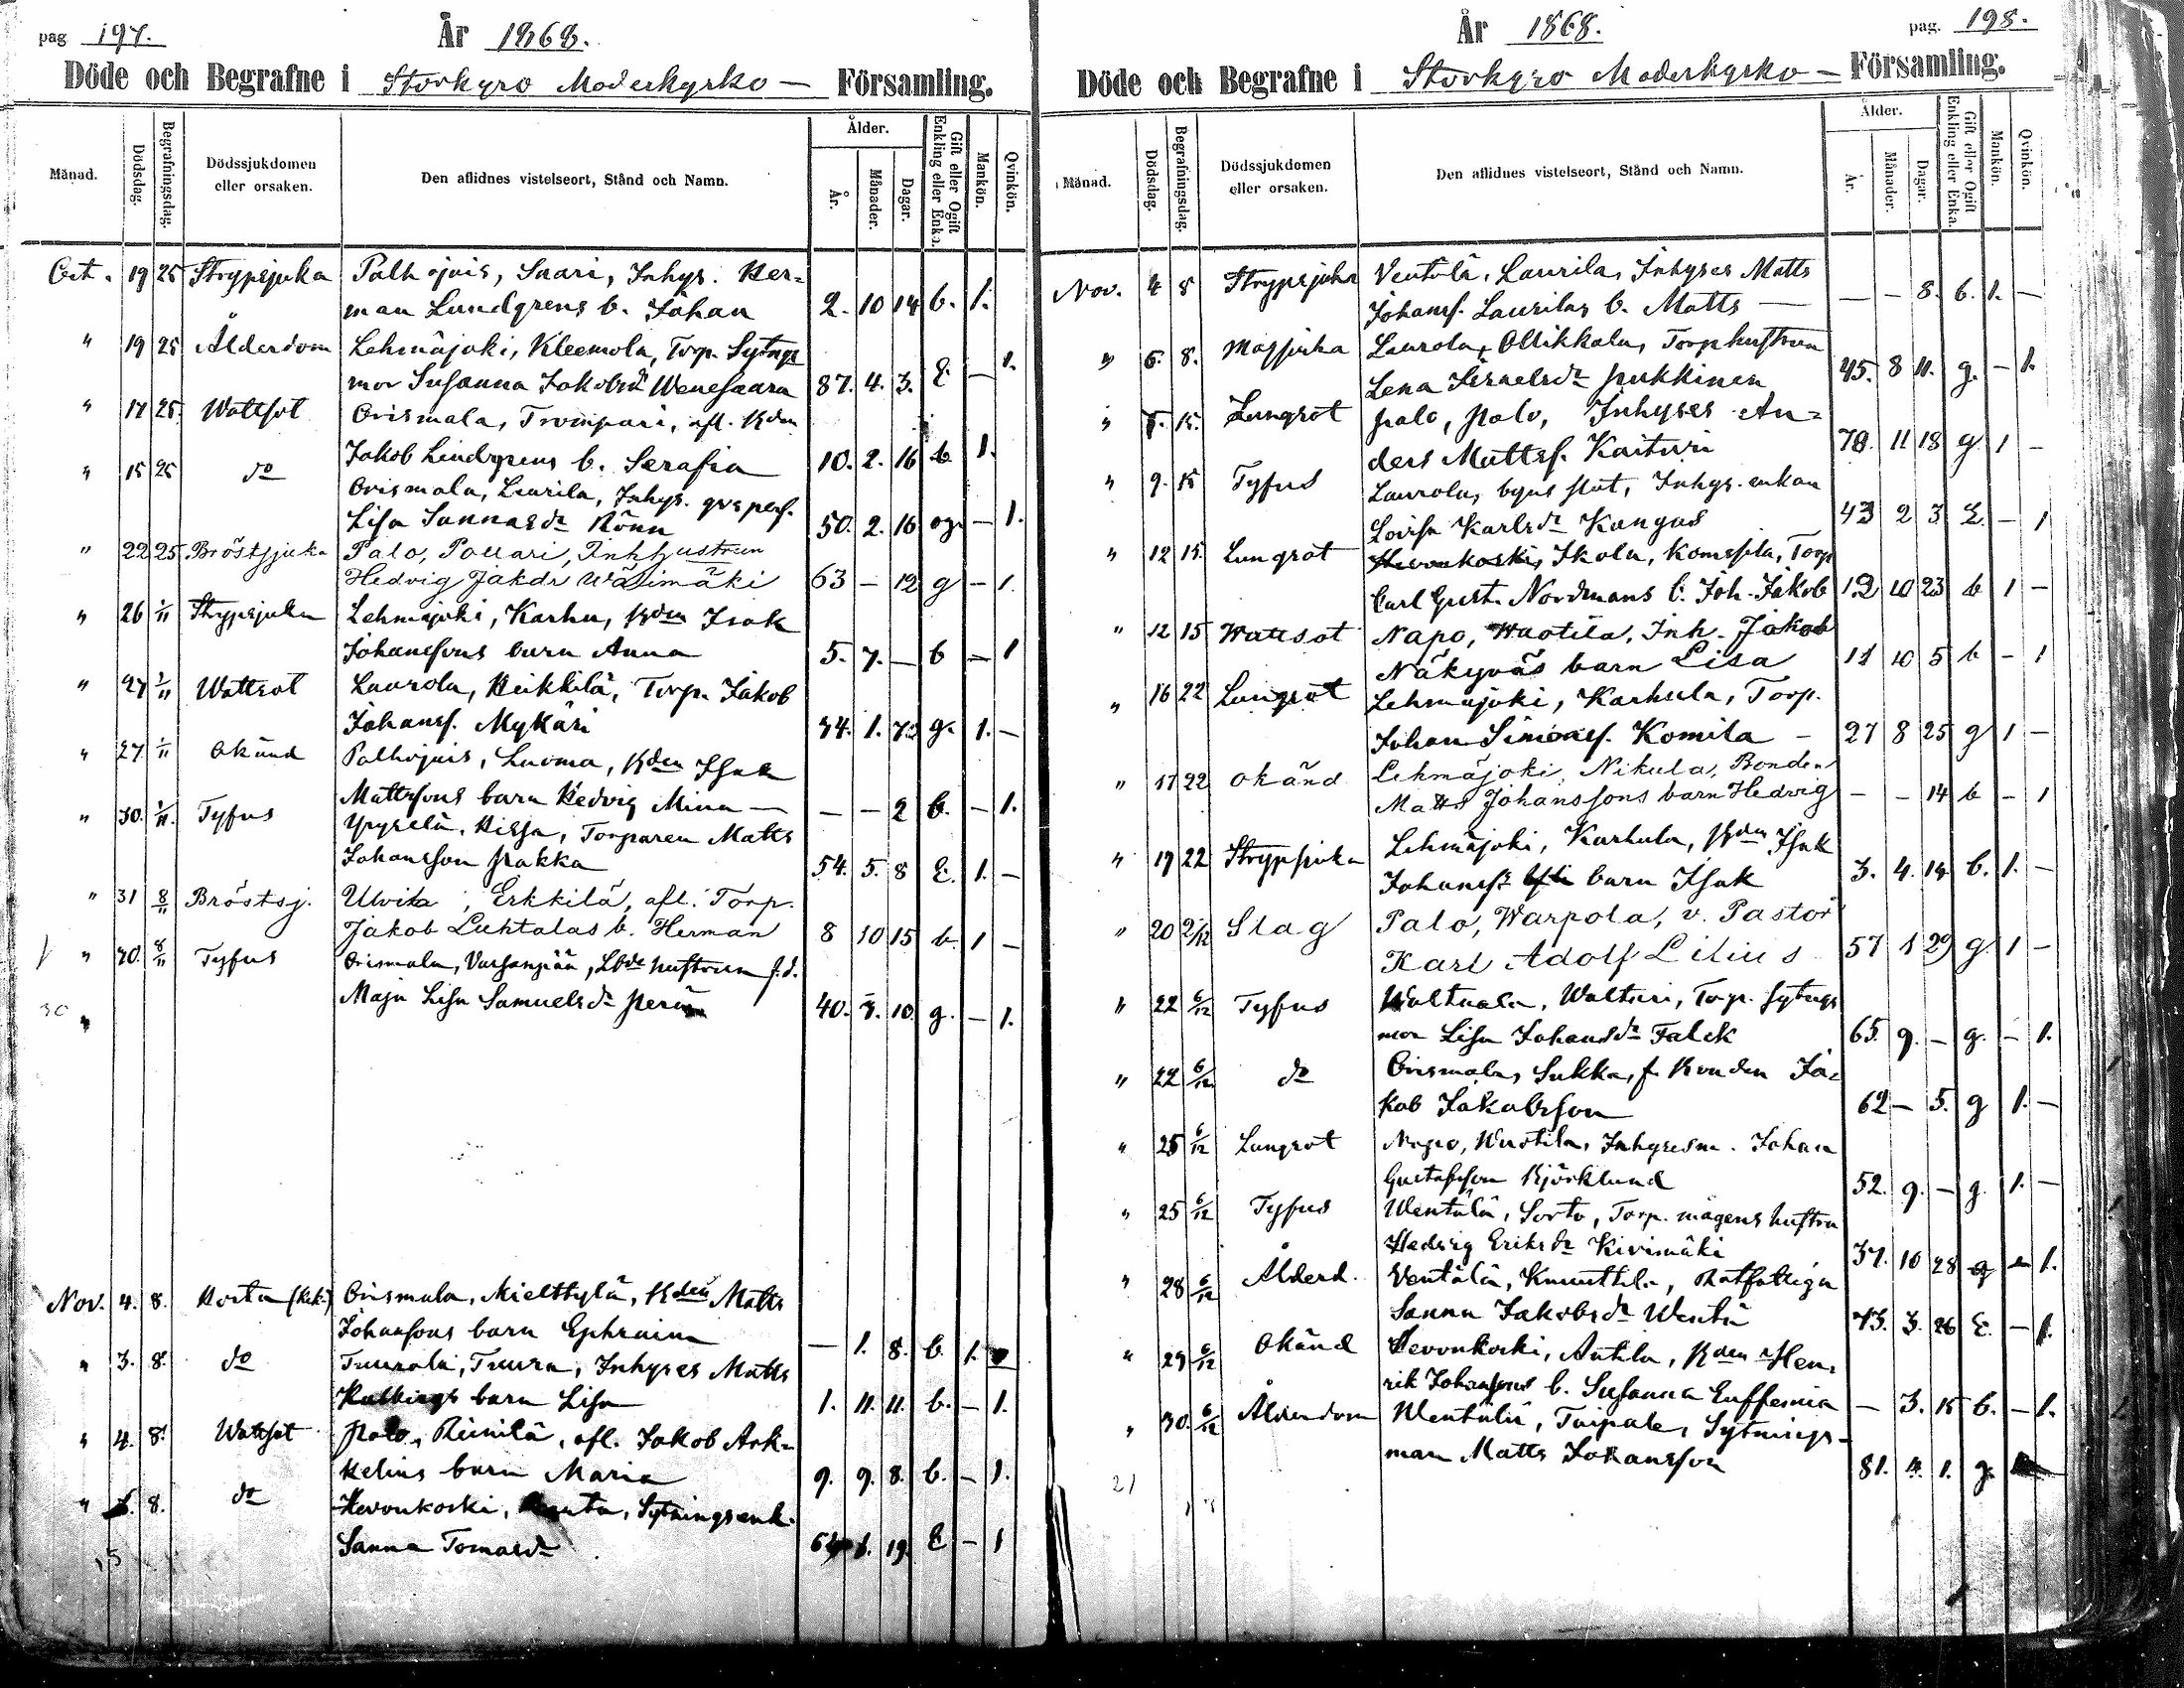 pag 197.
År 1868.
Döde och Begrafne i Storkyro Moderkyrko — Församling.
Månad.
Dödsdag.
Begrafningsdag.
Dödssjukdomen eller orsaken.
Den aflidnes vistelseort, Stånd och Namn.
Ålder.
År.
Månader.
Dagar.
Gift eller Ogift Enkling eller Enka.
Mankön.
Qvinkön.
Oct. 19 25 Strypsjuka Palhojais, Saari, Inhys. Her=
man Lundgrens b. Johan 2. 10 14 b. 1.
" 19 25 Ålderdom Lehmäjoki, Kleemola, Torp. Sytngs
mor Susanna Jakobsdr Wenesaara 87. 4. 3. E. — 1.
" 17 25. Wattsot Orismala, Trompari, afl. Bdn
Jakob Lindgrens b. Serafia 10. 2. 16 b 1.
" 15 25 do Orismala, Laurila, Inhys. qvspers.
Lisa Sannasdr Rönn 50. 2. 16 og. — 1.
" 22 25 Bröstsjuka Palo, Pollari, Inhhustrun
Hedvig Jakdr Wäsimäki 63 — 12 g — 1.
" 26 1/11 Strypsjuka Lehmäjoki, Karhu, Bden Isak
Johanssons barn Anna 5. 7. — b — 1
" 27 1/11 Wattsot Laurola, Heikkilä, Torp. Jakob
Johanss. Mykäri 1. g. 1. —
" 27 1/11 Okänd Palhojais, Luoma, Bden Isak
Mattssons barn Hedvig Mina — — — 2 b. — 1.
" 30. 1/11. Tyfus Ypyselä, Hissa, Torparen Matts
Johansson Pakka 54. 5. 8 E. 1. —
" 31 8/11 Bröstsj. Ulvila, Erkkilä, afl. Torp.
Jakob Luhtalas b. Herman 8 10 15 b. 1 —
" 30. 8/11 Tyfus Orismala, hustrun f.d.
Maja Lisa Samuelsdr 40. 3. 10. g. — 1.
30
Nov. 4. 8. Hosta (kik-) Orismala, Mielttylä, Bden Matts
Johanssons barn Ephraim — 1. 8. b. 1.
" 3. 8. do Tuurala, Tuura, Inhyses Matts
barn Lisa 1. 11. 11. b. — 1.
" 4. 8. Wattsot Palo, Riinilä, afl. Jakob Ask-
kelins barn Maria 9. 9. 8. b. — 1.
" 8. do Hevonkoski, Sytningsenk.
Sanna Tomasdr 19. E — 1
15
År 1868.
pag. 198.
Döde och Begrafne i Storkyro Moderkyrko — Församling.
Månad.
Dödsdag.
Begrafningsdag.
Dödssjukdomen eller orsaken.
Den aflidnes vistelseort, Stånd och Namn.
Ålder.
År.
Månader.
Dagar.
Gift eller Ogift Enkling eller Enka.
Mankön.
Qvinkön.
Nov. 4 8 Strypsjuka Ventälä, Laurila, Inhyses Matts
Johanss. Laurilas b. Matts — — — 8. b. 1. —
" 6. 8. Magsjuka Laurola, Ollikkala, Torphustrun
Lena Isrnelsdr Pukkinen 45. 8 11. g. — 1.
" 15. Lungrot Palo, Palo, Inhyses An=
ders Mattss. Kaituri 11 18 g 1 —
" 9. 15 Tyfus Laurola, byns slut, Inhys. enkan
Lovisa Karlsdr Kangas 43 2 3 E. — 1
" 12 15. Lungrot Hevonkoski, Skola, Torp
Carl Gust. Nordmans b. Joh. Jakob 12 10 23 b 1 —
" 12 15 Wattsot Napo, Waotila, Inh. Jakob
Näkyväs barn Lisa 11 10 5 b — 1
" 16 22 Lungrot Lehmäjoki, Karhula, Torp.
Johan Simonss. Komila — 27 8 25 g 1 —
" 17 22 okänd Lehmäjoki, Nikula, Bonden
Matts Johanssons barn Hedvig — — 14 b — 1
" 19 22 Strypsjuka Lehmäjoki, Karhula, Bden Isak
Johanss. barn Isak 3. 4. 14 b. 1. —
" 20 2/12 Slag Palo, Warpola, v. Pastor
Karl Adolf Lilius 57 1 29 g 1 —
" 22 6/12 Tyfus Waltaala, Walturi, Torp. sytngs
mor Lisa Johansdr Falck 65. 9. — g. — 1.
" 22 6/12 do Orismala, Sukka, f. Bonden Ja=
kob Jakobsson 62 — 5. g 1. —
" 25 6/12 Lungrot Napo, Waotila, Inhysesm. Johan
Gustafsson Björklund 52. 9. — g. 1. —
" 25 6/12 Tyfus Wentälä, Sorto, Torp. mågens hustru
Hedvig Eriksdr Kivimäki 37. 10 28 g — 1.
" 28 6/12 Ålderd. Ventälä, Knuuttila, Rotfattiga
Sanna Jakobsdr Wentä 73. 3. 26 E. — 1.
" 29 6/12 Okänd Hevonkoski, Antila, Bden Hen=
rik Johanssons b. Susanna Euffemia — 3. 15 b. — 1.
" 30. 6/12 Ålderdom Wentälä, Taipale, Sytnings-
man Matts Johansson 81. 4. 1. g.
21